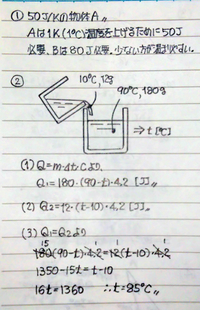 ① 50J/Kの物体A〃
Aは1K(1℃)温度を上げるために50J
必要、Bは80J必要。少ない方が温まりやすい。
②
10℃, 12g
90℃, 180g
⇒ t[℃]
(1) Q=m・Δt・Cより、
Q₁=180・(90-t)・4.2 [J]〃
(2) Q₂=12・(t-10)・4.2 [J]〃
(3) Q₁=Q₂より
15 1 1 1
180(90-t)・4.2=12(t-10)・4.2
1350-15t=t-10
16t=1360 ∴t=85℃〃